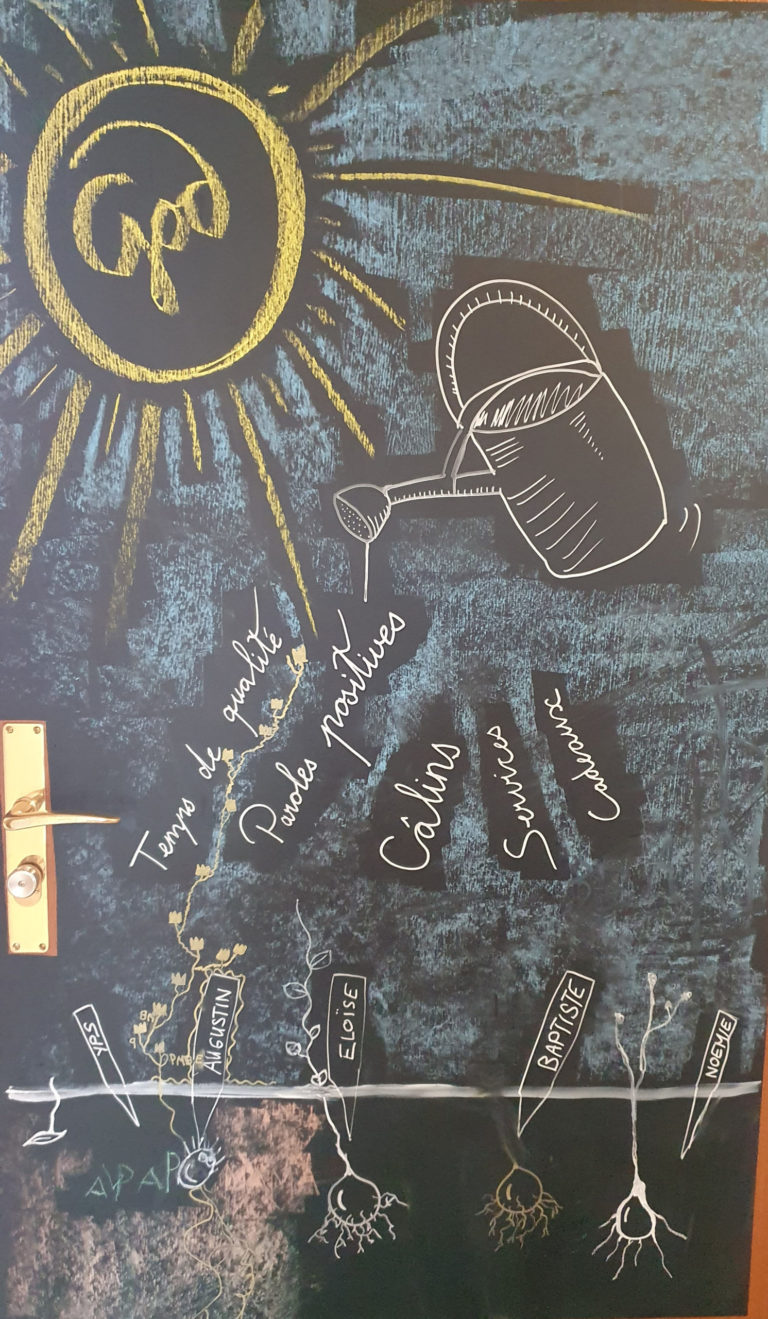 God
Temps de qualité
Paroles positives
Câlins
Services
Cadeaux
YRS
AUGUSTIN
ELOÏSE
BAPTISTE
NOEMIE
APAP